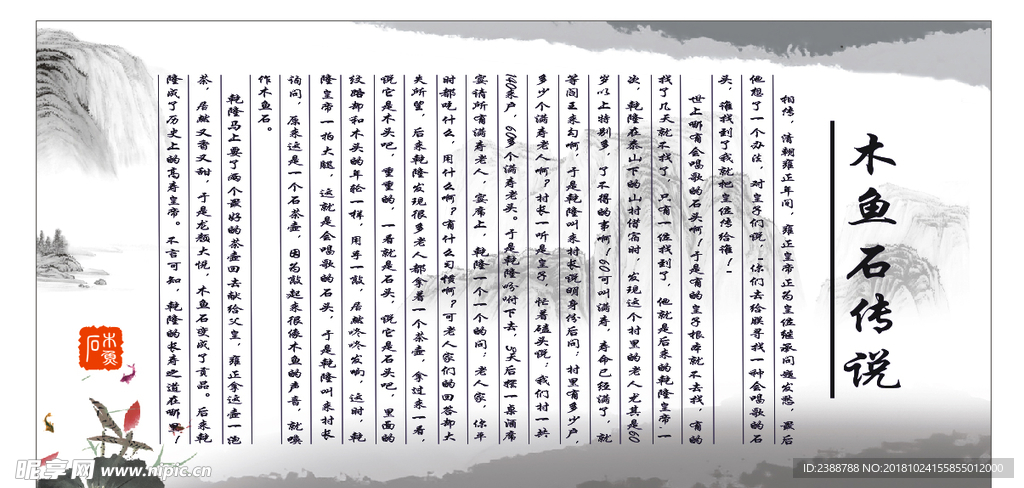 木鱼石传说
相传，清朝雍正年间，雍正皇帝正为皇位继承问题发愁，最后
他想了一个办法，对皇子们说，"你们去给朕寻找一种会唱歌的石
头，谁找到了我就把皇位传给谁！"
世上哪有会唱歌的石头啊！于是有的皇子根本就不去找，有的
找了几天就不找了，只有一位找到了，他就是后来的乾隆皇帝。一
次，乾隆在泰山下的山村借宿时，发现这个村里的老人尤其是60
岁以上特别多，了不得的事啊！60可叫满寿，寿命已经满了，就
等阎王来勾啊，于是乾隆叫来村长说明身份后问：村里有多少户，
多少个满寿老人啊？村长一听是皇子，忙着磕头说：我们村一共
100来户，60多个满寿老头。于是乾隆吩咐下去，3天后摆一桌酒席
宴请所有满寿老人，宴席上，乾隆一个一个的问：老人家，你平
时都吃什么，用什么啊？有什么习惯啊？可老人家们的回答却大
失所望，后来乾隆发现很多老人都拿着一个茶壶，拿过来一看，
说它是木头吧，重重的，一看就是石头，说它是石头吧，里面的
纹路却和木头的年轮一样，用手一敲，居然咚咚发响，这时，乾
隆皇帝一拍大腿，这就是会唱歌的石头，于是乾隆叫来村长
询问，原来这是一个石茶壶，因为敲起来很像木鱼的声音，就唤
作木鱼石。
乾隆马上要了两个最好的茶壶回去献给父皇，雍正拿这壶一泡
茶，居然又香又甜，于是龙颜大悦，木鱼石变成了贡品。后来乾
隆成了历史上的高寿皇帝。不言可知，乾隆的长寿之道在哪里！
昵享网 www.nipic.cn
ID:2388788 NO:20181024155855012000